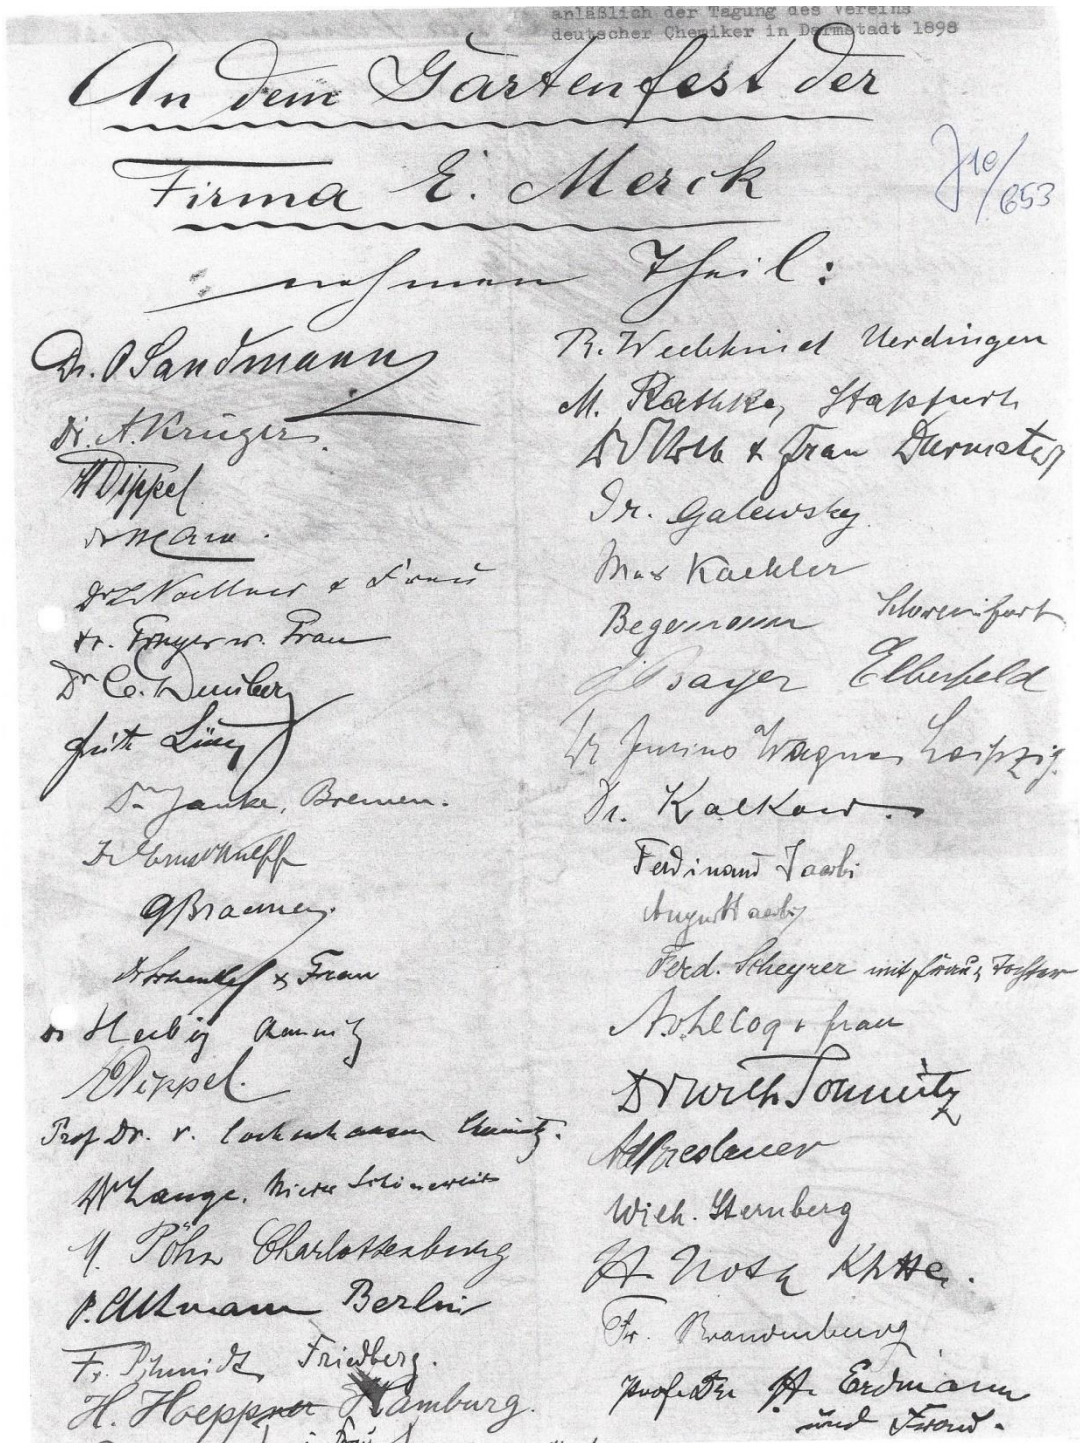 anläßlich der Tagung des Vereins
deutscher Chemiker in Darmstadt 1898
An dem Gartenfest der
Firma E. Merck
J10/653
nehmen Theil:
Dr. P Sandmann
Dr. A. Krüger.
Dippel
Dr
Dr & Frau
Dr. Frau
Dr C. Duisberg
Fritz
Dr Janke, Bremen.
Dr Ernst Wulff
G
Dr Schenkel & Frau
Dr Herbig Chemnitz
Dippel.
Prof Dr. v. Cochenhausen Chemnitz.
Dr Lange. Nieder Schöneweide
M. Pöhn Charlottenburg
P. Altmann Berlin
Fr. Schmidt Friedberg.
H. Hoeppner Hamburg.
R. Wedekind Uerdingen
M. Rathke, Stassfurt
Dr & Frau Darmstadt
Dr. Galewsky
Max Kaehler
Begemann Schweinfurt
Bayer Elberfeld
Dr Julius Wagner Leipzig.
Dr. Kalkow.
Ferdinand Jacobi
August
Ferd. Scheyrer mit Frau & Tochter
& Frau
Dr
Ad Breslauer
Wilh. Sternberg
H.
Fr. Brandenburg
Prof. Dr H. Erdmann
und Frau.